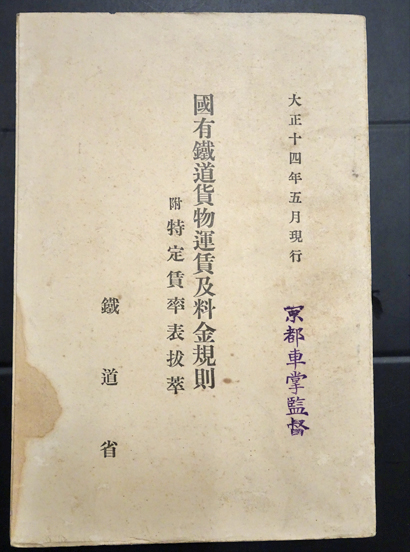 大正十四年五月現行
京都車掌監督
國有鐵道貨物運賃及料金規則
附 特定賃率表拔萃
鐵道省